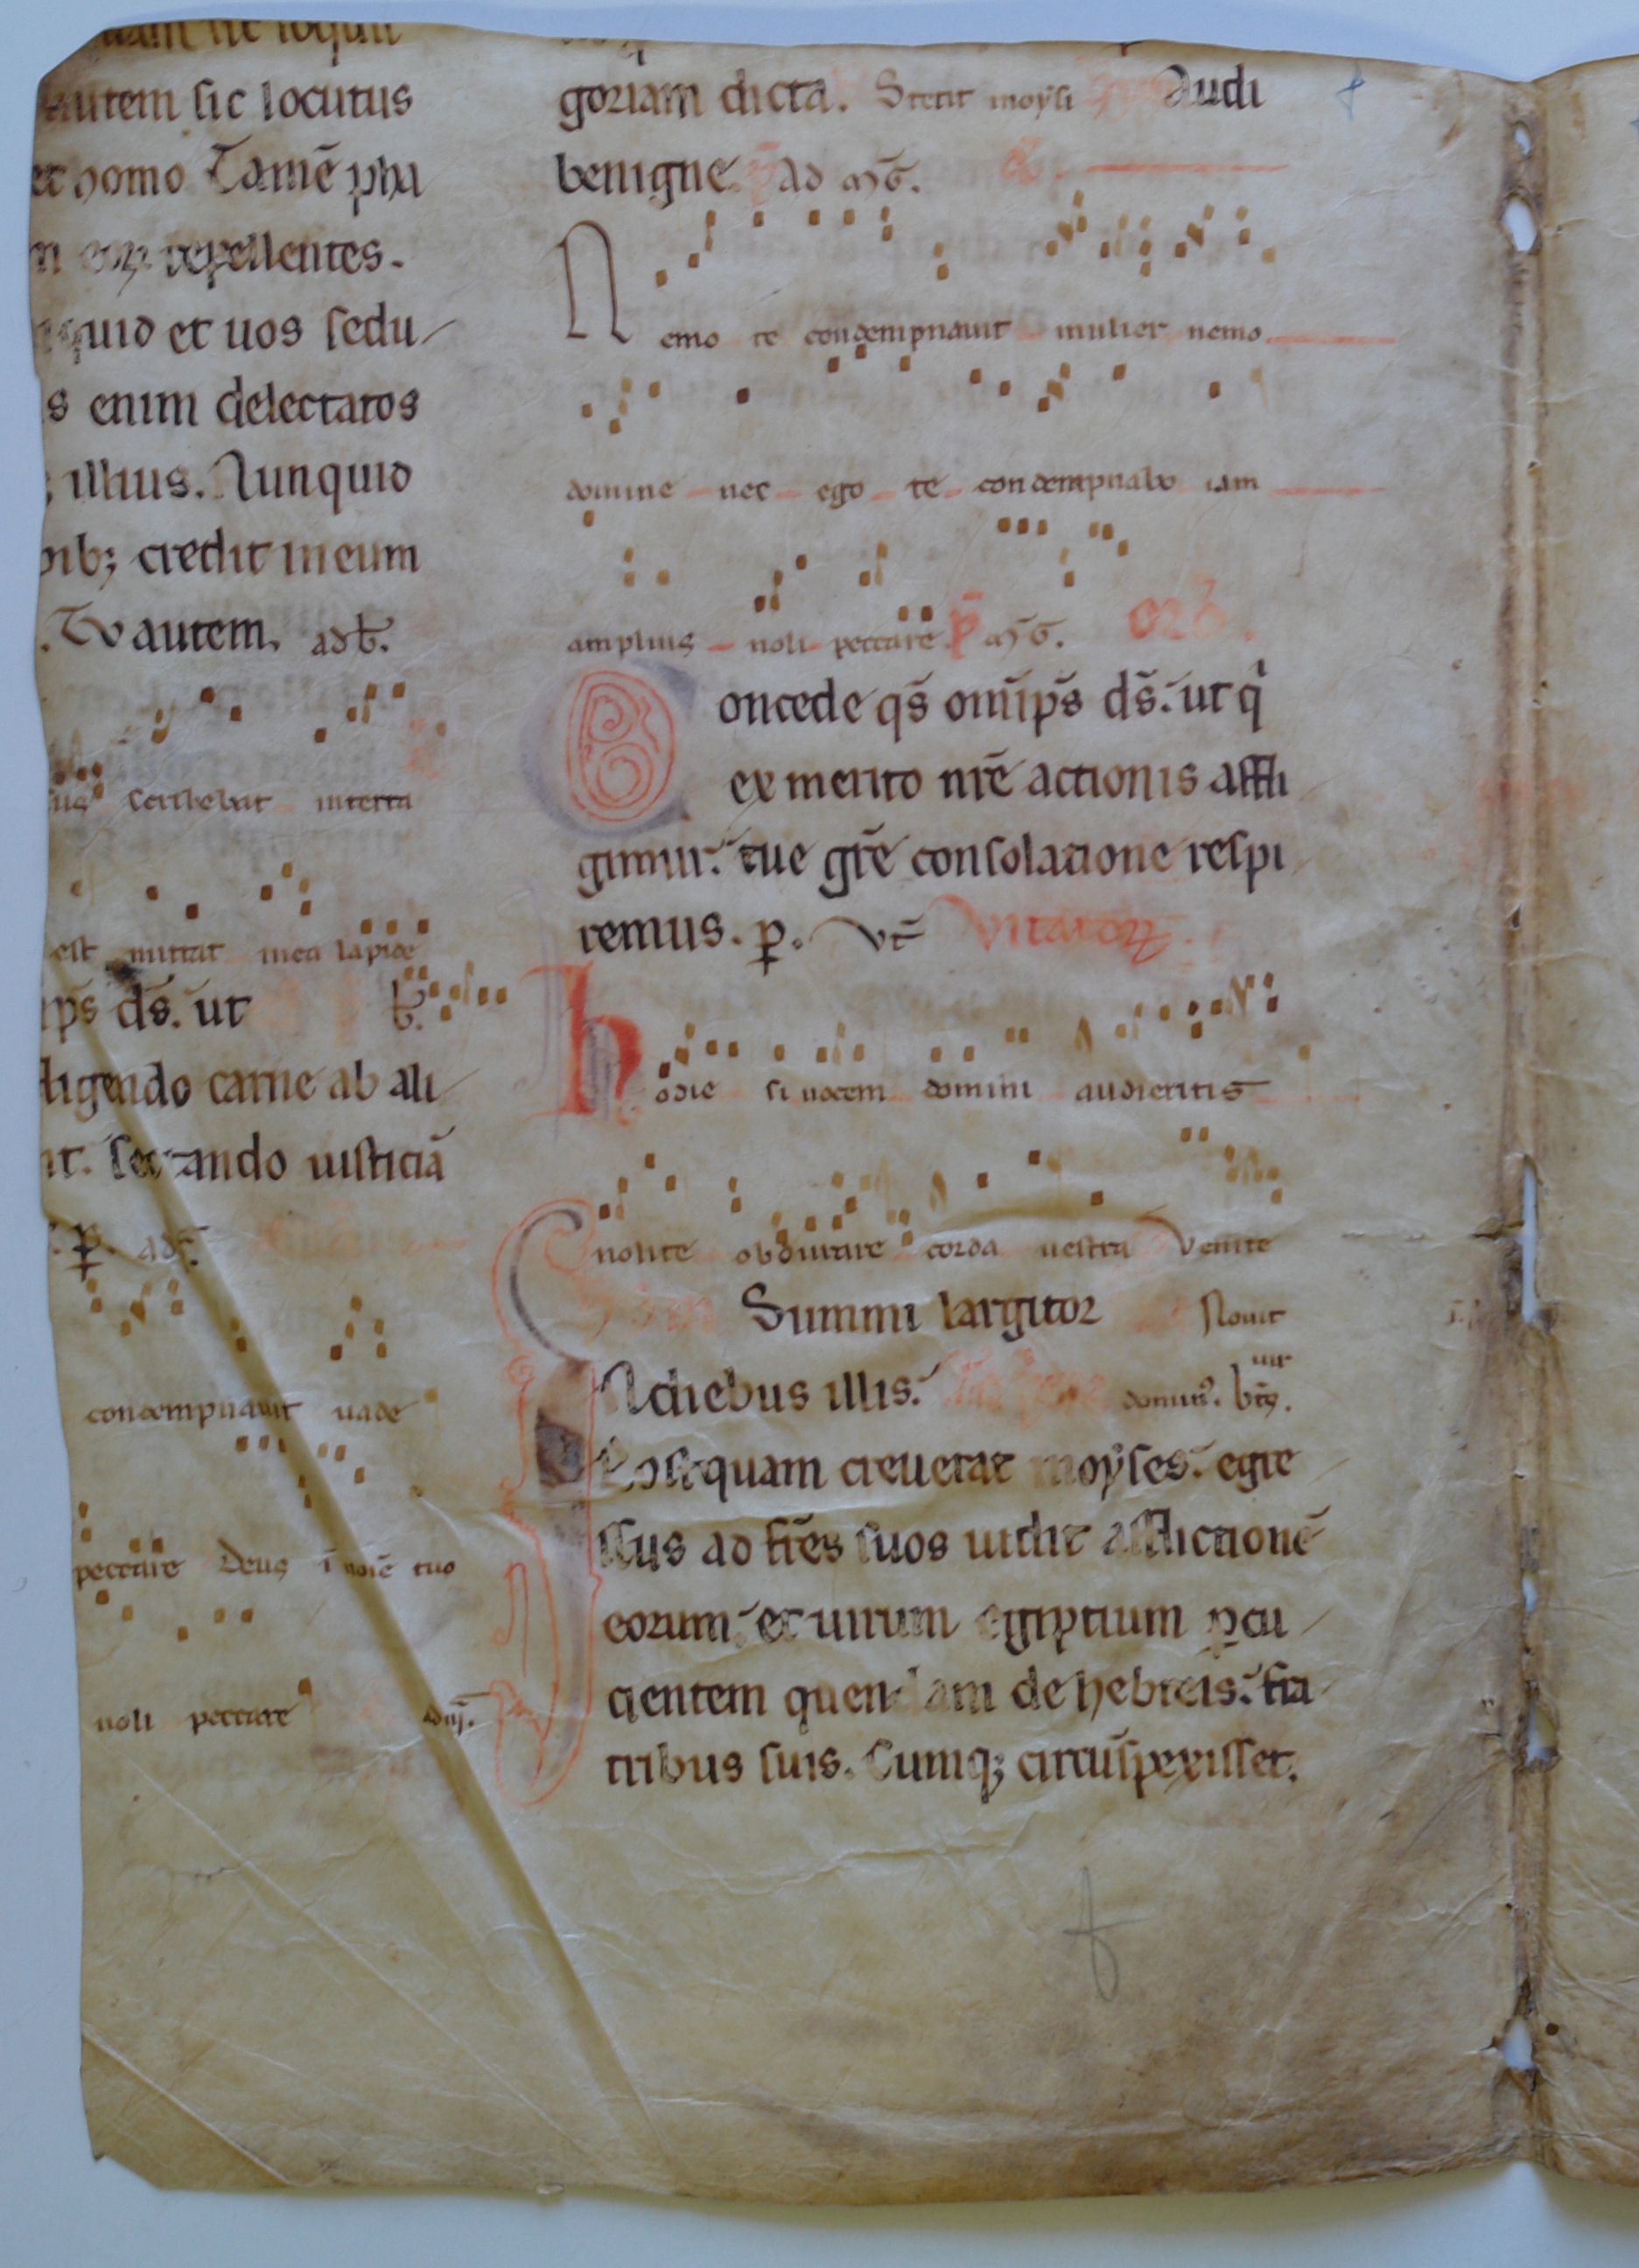 autem sic locutus
et homo Tamē pha
repellentes.
quid et uos sedu
s enim delectatos
illius. Nunquid
ib; credit in eum
. Tu autem. ad b.
us scribebat in terra
est mittat in ea lapide
ips ds. ut
ligendo carne ab ali
nt. sectando iusticiā
condempnauit uade
peccare Deus ī noīe tuo
noli peccare
goriam dicta. Stetit moysi Audi
benigne. ad mḡ.
Nemo te condempnauit mulier nemo
domine nec ego te condempnabo iam
amplius noli peccare. p̄ mḡ. or̄.
Concede qs̄ om̄ips̄ ds̄. ut qi
ex merito nr̄e actionis affli
gimur. tue gr̄e consolatione respi
remus. p. Inuitatorꝝ.
hodie si uocem domini audieritis
nolite obdurare corda uestra Venite
Summi largitor Nouit
In diebus illis.
Postquam creuerat moyses. egre
ssus ad fr̄es suos uidit afflictionē
eorum. et uirum egiptium ꝑcu
cientem quendam de hebreis. fra
tribus suis. Cumq; circūspexisset.